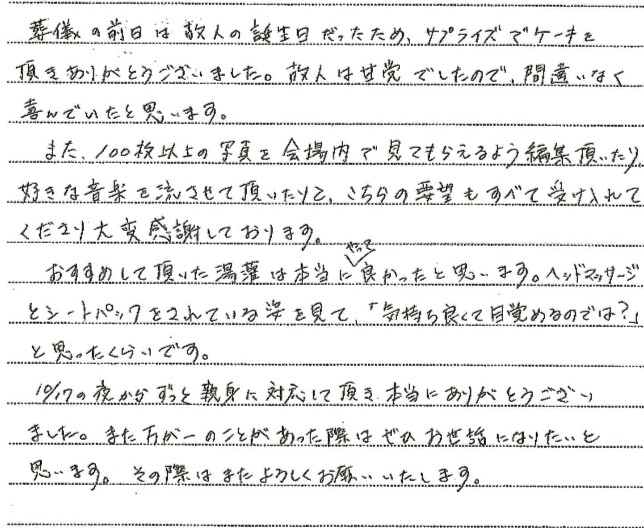 葬儀の前日は故人の誕生日だったため、サプライズでケーキを
頂きありがとうございました。故人は甘党でしたので、間違いなく
喜んでいたと思います。
また、100枚以上の写真を会場内で見てもらえるよう編集頂いたり
好きな音楽を流させて頂いたりと、こちらの要望もすべて受け入れて
くださり大変感謝しております。
やって
おすすめして頂いた湯灌は本当に良かったと思います。ヘッドマッサージ
とシートパックをされている姿を見て、「気持ち良くて目覚めるのでは?」
と思ったくらいです。
10/17の夜からずっと親身に対応して頂き本当にありがとうござい
ました。また万が一のことがあった際はぜひお世話になりたいと
思います。その際はまたよろしくお願いいたします。